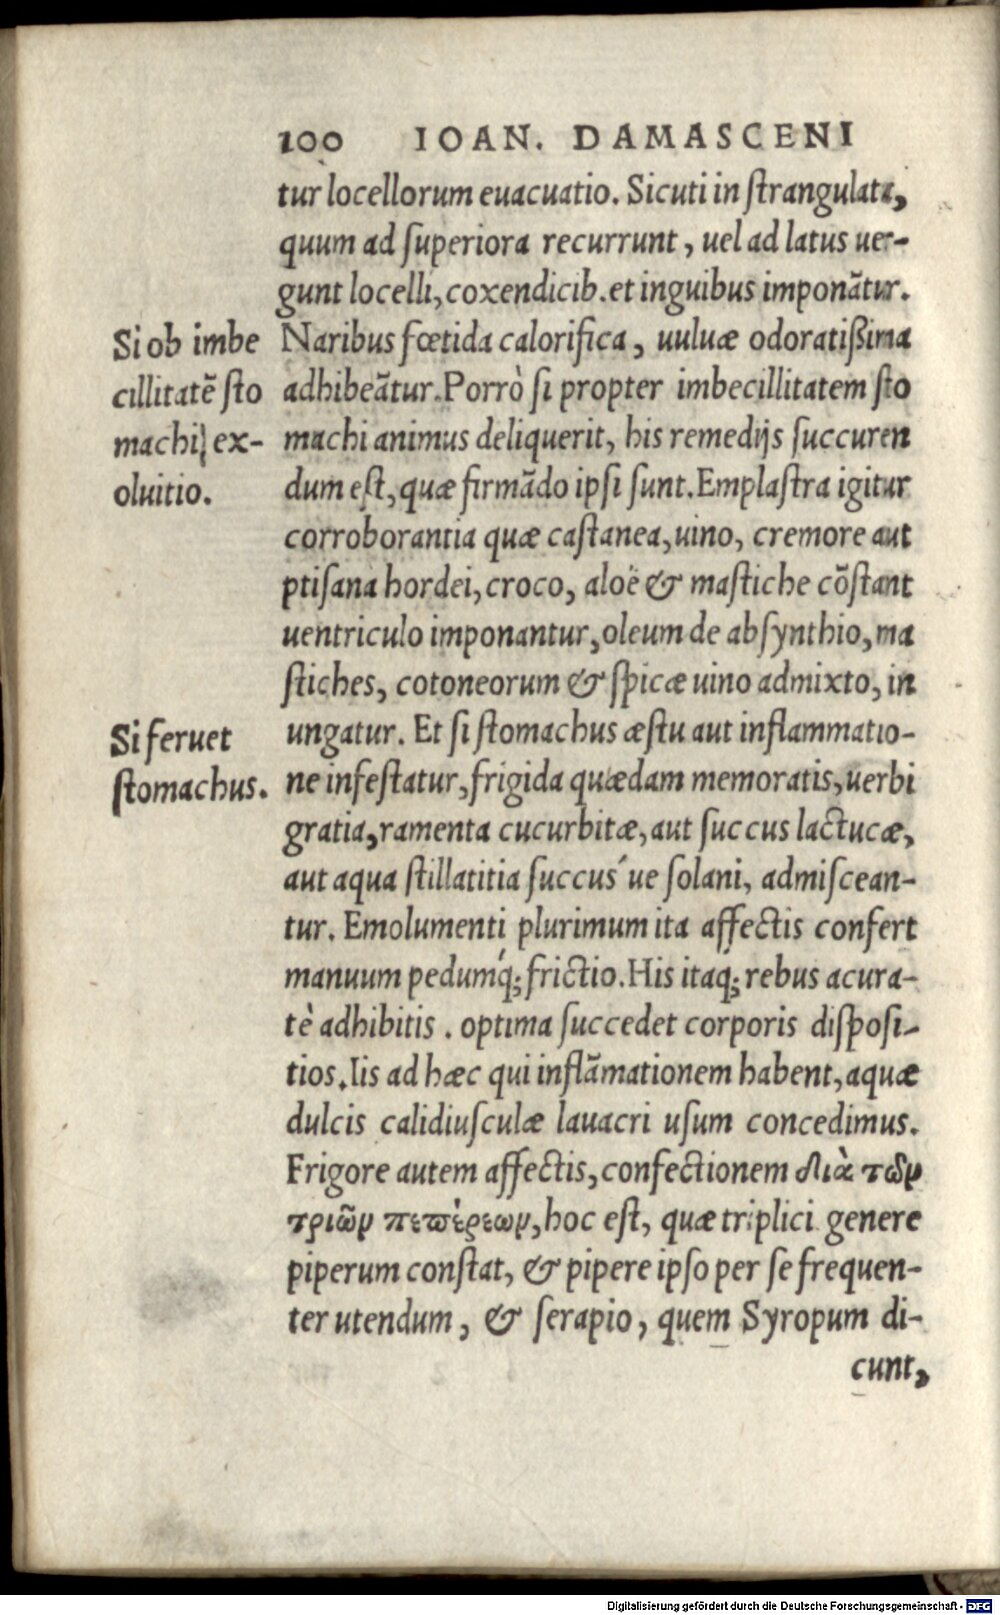 100 IOAN. DAMASCENI
tur locellorum euacuatio. Sicuti in ſtrangulata,
quum ad ſuperiora recurrunt, uel ad latus uer-
gunt locelli, coxendicib. et inguibus imponãtur.
Naribus fœtida calorifica, uuluæ odoratißima
adhibeãtur. Porrò ſi propter imbecillitatem ſto
machi animus deliquerit, his remedijs ſuccuren
dum eſt, quæ firmãdo ipſi ſunt. Emplaſtra igitur
corroborantia quæ caſtanea, uino, cremore aut
ptiſana hordei, croco, aloë & maſtiche cõſtant
uentriculo imponantur, oleum de abſynthio, ma
ſtiches, cotoneorum & ſpicæ uino admixto, in
ungatur. Et ſi ſtomachus æſtu aut inflammatio-
ne infeſtatur, frigida quædam memoratis, uerbi
gratia, ramenta cucurbitæ, aut ſuccus lactucæ,
aut aqua ſtillatitia ſuccuś ue ſolani, admiſcean-
tur. Emolumenti plurimum ita affectis confert
manuum pedumq́; frictio. His itaq; rebus acura-
tè adhibitis. optima ſuccedet corporis diſpoſi-
tios. Iis ad hæc qui inflãmationem habent, aquæ
dulcis calidiuſculæ lauacri uſum concedimus.
Frigore autem affectis, confectionem διὰ τῶν
τριῶν πεπέρεων, hoc eſt, quæ triplici genere
piperum conſtat, & pipere ipſo per ſe frequen-
ter utendum, & ſerapio, quem Syropum di-
cunt,
Si ob imbe
cillitatẽ ſto
machi, ex-
oluitio.
Si feruet
ſtomachus.
Digitalisierung gefördert durch die Deutsche Forschungsgemeinschaft - DFG